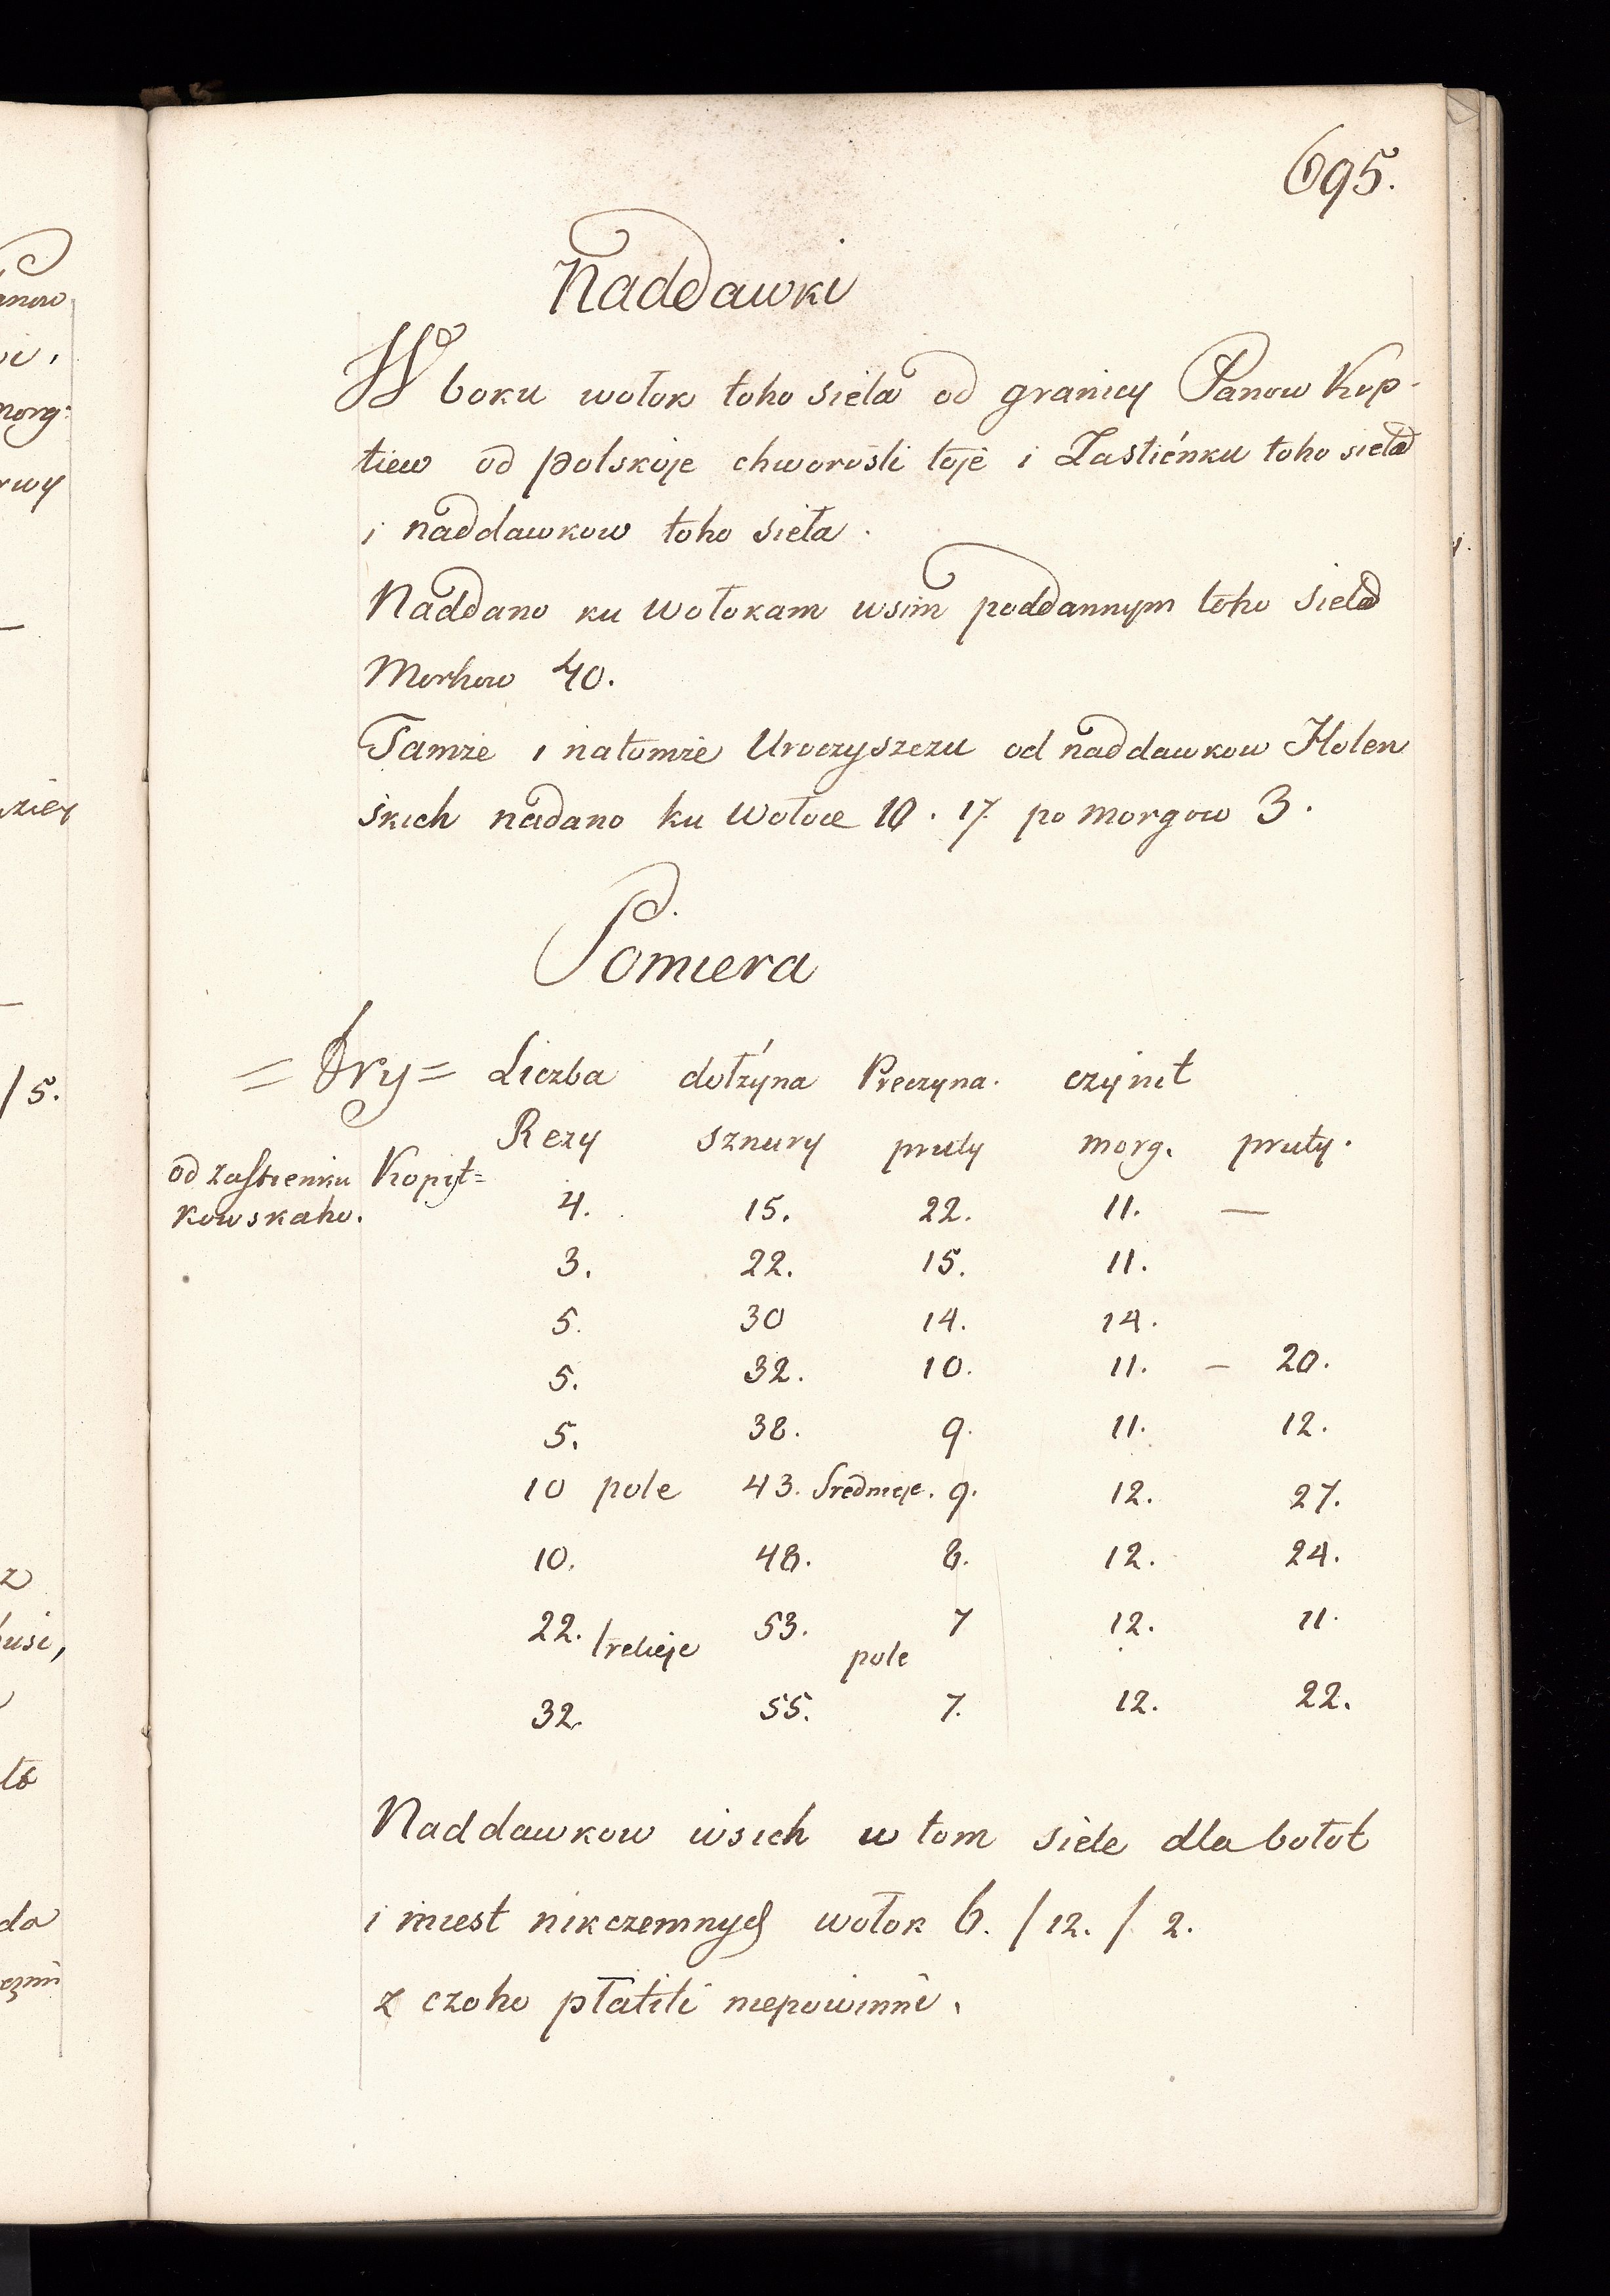 695.
Naddawki
W boku wołok toho sieła od granicy Panow Kop-
tiew od polskoje chworosti toje i Zastienku toho sieła
i naddawkow toho sieła.
Naddano ku wołokam wsim poddannym toho sieła
Morhow 40.
Tamże i natomże Uroczyszczu od naddawkow Holen
skich nadano ku Wołoce 10. 17. po morgow 3.
Pomiera
= try = Liczba dołżyna Preczyna. czynit
Rezy sznury pruty morg. pruty.
od zastienku Kopyt=
kowskaho.
4. 15. 22. 11. —
3. 22. 15. 11.
5. 30 14. 14.
5. 32. 10. 11. — 20.
5. 38. 9. 11. 12.
10 pole 43. Srednieje. 9. 12. 27.
10. 48. 8. 12. 24.
22. tretieje 53. pole 7 12. 11.
32. 55. 7. 12. 22.
Naddawkow wsich w tom siele dla bołot
i miest nikczemnych wołok 6. / 12. / 2.
z czoho płatiti niepowinni.
anow
morg:
/ 5.